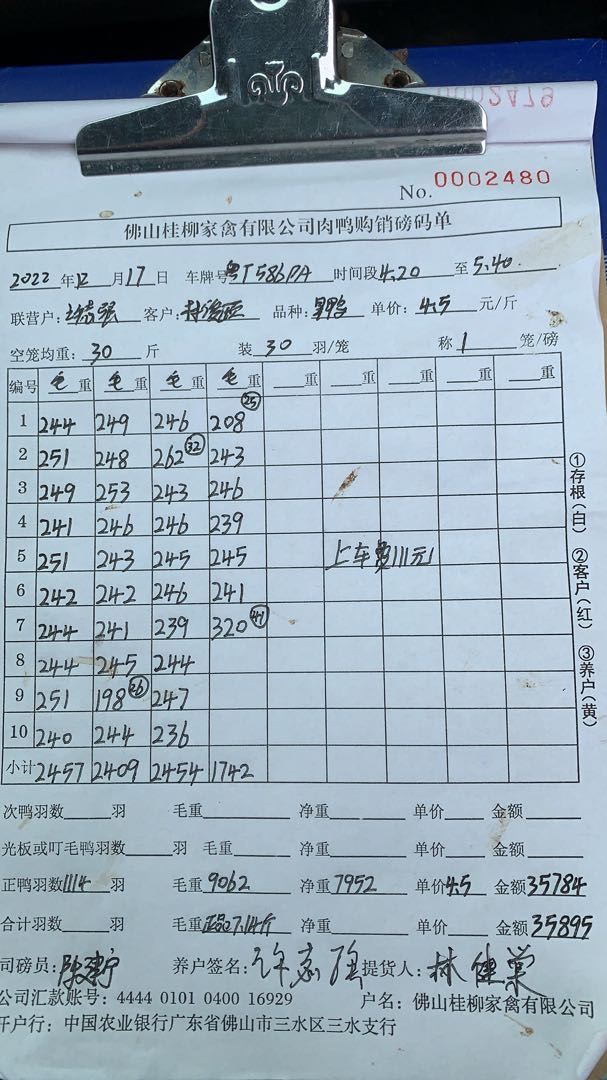 0002479
No. 0002480
佛山桂柳家禽有限公司肉鸭购销磅码单
2022 年 12 月 17 日 车牌号 粤T586PA 时间段 4.20 至 5.40
联营户: 客户: 品种: 单价: 4.5 元/斤
空笼均重: 30 斤 装 30 羽/笼 称 1 笼/磅
编号 毛重 毛重 毛重 毛重 重 重 重 重 重
1 244 249 246 208 (25)
2 251 248 262 (32) 243
3 249 253 243 246
4 241 246 246 239
5 251 243 245 245 上车费111元
6 242 242 246 241
7 244 241 239 320 (41)
8 244 245 244
9 251 198 (26) 247
10 240 244 236
小计 2457 2409 2454 1742
①存根(白) ②客户(红) ③养户(黄)
次鸭羽数 羽 毛重 净重 单价 金额
光板或叮毛鸭羽数 羽 毛重 净重 单价 金额
正鸭羽数 1114 羽 毛重 9062 净重 7952 单价 4.5 金额 35784
合计羽数 羽 毛重 7.14斤 净重 单价 金额 35895
司磅员: 养户签名: 许志强 提货人: 林
公司汇款账号: 4444 0101 0400 16929 户名: 佛山桂柳家禽有限公司
开户行: 中国农业银行广东省佛山市三水区三水支行